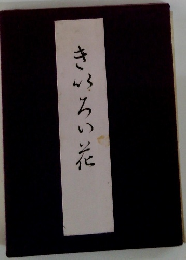 きいろい花